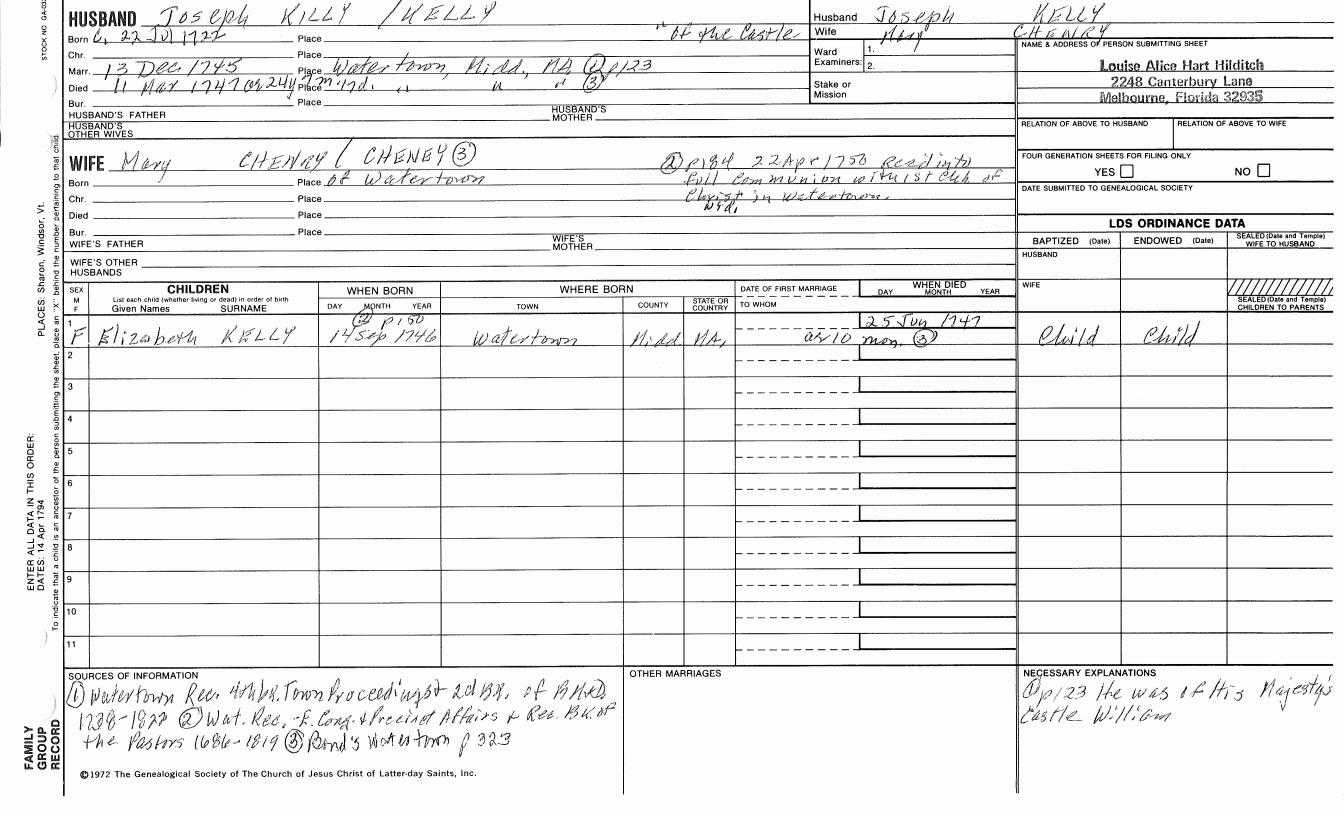 STOCK NO. GA-03
HUSBAND Joseph KILLY / KELLY
Born C. 22 Jul 1722 Place "of the Castle
Chr. Place
Marr. 13 Dec 1745 Place Watertown, Midd., MA, ① p123
Died 11 Mar 1747 ae 24y 7m 17d. Place " " " ③
Bur. Place
HUSBAND'S FATHER HUSBAND'S MOTHER
HUSBAND'S OTHER WIVES
WIFE Mary CHENRY / CHENEY ③
② p184 22 Apr 1750 Recd into
Full Communion with 1st Chh of
Christ in Watertown.
Wid.
Born Place of Watertown
Chr. Place
Died Place
Bur. Place
WIFE'S FATHER WIFE'S MOTHER
WIFE'S OTHER HUSBANDS
Husband Joseph KELLY
Wife Mary CHENRY
Ward Examiners: 1.
2.
Stake or Mission
NAME & ADDRESS OF PERSON SUBMITTING SHEET
Louise Alice Hart Hilditch
2248 Canterbury Lane
Melbourne, Florida 32935
RELATION OF ABOVE TO HUSBAND RELATION OF ABOVE TO WIFE
FOUR GENERATION SHEETS FOR FILING ONLY
YES NO
DATE SUBMITTED TO GENEALOGICAL SOCIETY
LDS ORDINANCE DATA
BAPTIZED (Date) ENDOWED (Date) SEALED (Date and Temple) WIFE TO HUSBAND
HUSBAND
WIFE
SEALED (Date and Temple) CHILDREN TO PARENTS
SEX M F
CHILDREN
List each child (whether living or dead) in order of birth
Given Names SURNAME
WHEN BORN
DAY MONTH YEAR
WHERE BORN
TOWN COUNTY STATE OR COUNTRY
DATE OF FIRST MARRIAGE
TO WHOM
WHEN DIED
DAY MONTH YEAR
1 ② p150 25 Jun 1747
F Elizabeth KELLY 14 Sep 1746 Watertown Midd MA, ae 10 mon. ③ Child Child
2
3
4
5
6
7
8
9
10
11
SOURCES OF INFORMATION
① Watertown Rec. 4th bk. Town Proceedings & 2d BK. of BM&D
1738-1822 ② Wat. Rec. -E. Cong. & Precinct Affairs & Rec. Bk of
the Pastors 1686-1819 ③ Bond's Watertown p 323
©1972 The Genealogical Society of The Church of Jesus Christ of Latter-day Saints, Inc.
OTHER MARRIAGES
NECESSARY EXPLANATIONS
① p123 He was of His Majesty's
Castle William
PLACES: Sharon, Windsor, Vt.
ENTER ALL DATA IN THIS ORDER:
DATES: 14 Apr 1794
To indicate that a child is an ancestor of the person submitting the sheet, place an "X" behind the number pertaining to that child.
FAMILY
GROUP
RECORD